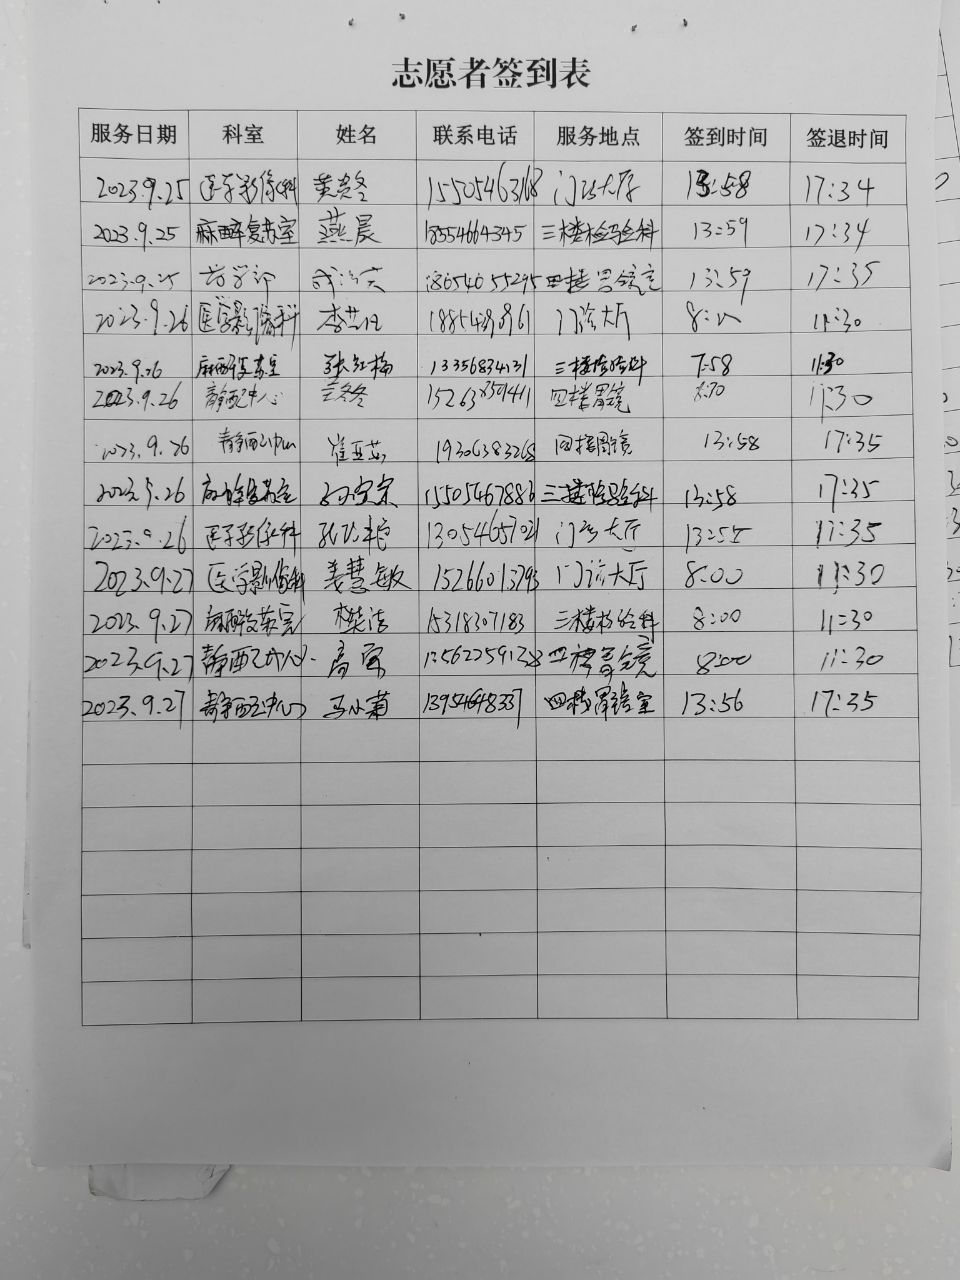 志愿者签到表
服务日期 科室 姓名 联系电话 服务地点 签到时间 签退时间
2023.9.25 医学影像科 黄冬 15505463168 门诊大厅 13:58 17:34
2023.9.25 麻醉复苏室 燕晨 18554664345 三楼检验科 13:59 17:34
2023.9.25 药学部 18654655295 四楼胃镜室 13:59 17:35
2023.9.26 医学影像科 李 门诊大厅 11:30
2023.9.26 麻醉复苏室 张红梅 13356834131 三楼检验科 7:58 11:30
2023.9.26 静配中心 兰冬冬 四楼胃镜 11:30
2023.9.26 静配中心 崔亚茹 19306383268 四楼胃镜 13:58 17:35
2023.9.26 麻醉复苏室 15505467886 三楼检验科 13:58 17:35
2023.9.26 医学影像科 门诊大厅 13:55 17:35
2023.9.27 医学影像科 姜慧敏 15266013793 门诊大厅 8:00 11:30
2023.9.27 麻醉复苏室 樊洁 15318307183 三楼检验科 8:00 11:30
2023.9.27 静配中心 高 四楼胃镜 8:00 11:30
2023.9.27 静配中心 马小菊 13954648337 四楼胃镜室 13:56 17:35